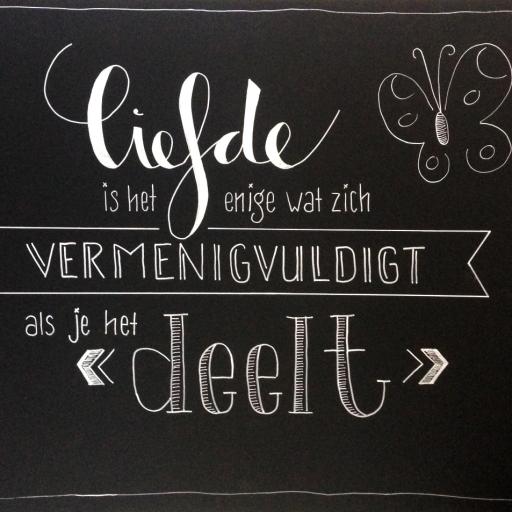 liefde
is het enige wat zich
VERMENIGVULDIGT
als je het
deelt